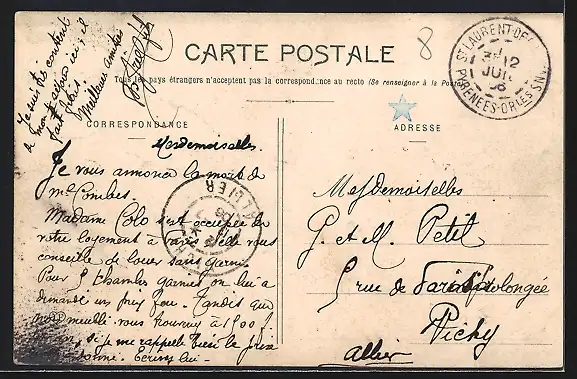 Je suis très content
de mon séjour ici, il
fait frais.
Meilleures amitiés
8
CARTE POSTALE
Tous les pays étrangers n'acceptent pas la correspondance au recto (Se renseigner à la Poste)
CORRESPONDANCE
ADRESSE
ST LAURENT-DE-
12
JUIL
PYRÉNÉES-ORLES
Mesdemoiselles.
Je vous annonce la mort de
Mr Combes
Madame Colo s'est occupée de
votre logement à Paris. Elle vous
conseille de louer sans garni.
Pour 3 chambres garnies on lui a
demandé un prix fou. Tandis que
meublé vous trouvez à 1500 f.
si je me rappelle bien le prix
donné. Ecrivez lui -
Mesdemoiselles
G. et M. Petit
rue de Paris prolongée
Vichy
Allier